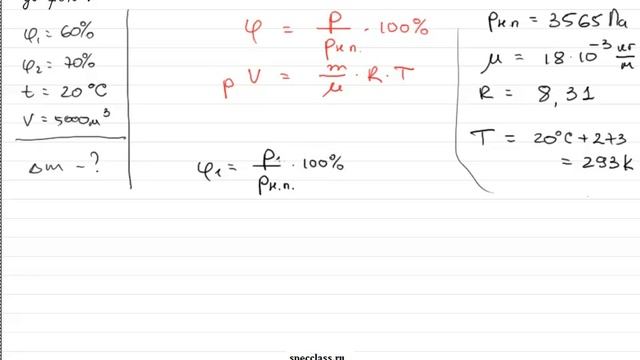 φ₁ = 60%
φ₂ = 70%
t = 20°C
V = 5000 м³
Δm - ?
φ = p/pн.п. · 100%
pV = m/μ · R · T
φ₁ = p₁/pн.п. · 100%
pн.п = 3565 Па
μ = 18·10⁻³ кг/м
R = 8,31
T = 20°C + 273
= 293 K
specclass.ru